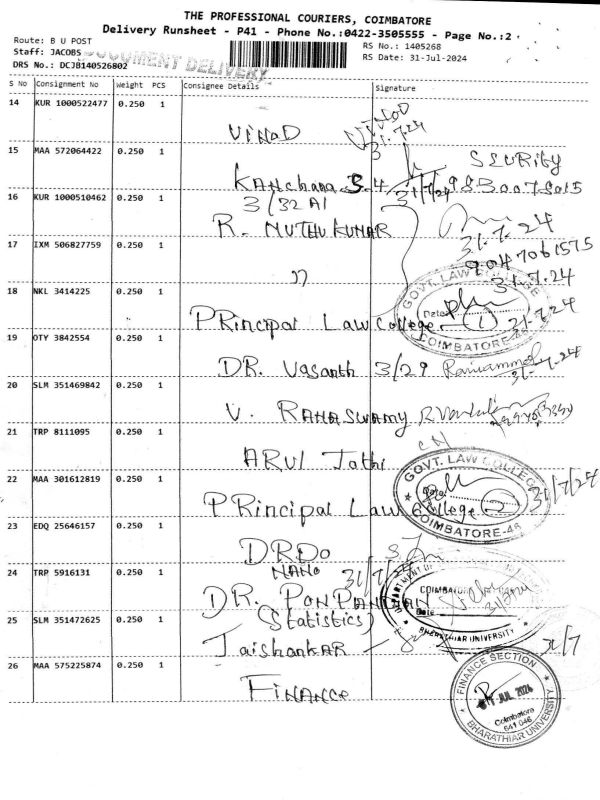 THE PROFESSIONAL COURIERS, COIMBATORE
Delivery Runsheet - P41 - Phone No.:0422-3505555 - Page No.:2
Route: B U POST
RS No.: 1405268
Staff: JACOBS
RS Date: 31-Jul-2024
DOCUMENT DELIVERY
DRS No.: DCJB140526802
S No Consignment No Weight PCS Consignee Details Signature
14 KUR 1000522477 0.250 1
VINOD 31.7.24
15 MAA 572064422 0.250 1
SECURITY
Kanchana S. 4 31/7/24
3/32 A1
16 KUR 1000510462 0.250 1
R. MUTHU KUMAR 31.7.24
17 IXM 506827759 0.250 1
9047061575
" 31.7.24
18 NKL 3414225 0.250 1
PRincipal Law College (1) 31.7.24
GOVT. LAW COLLEGE
Date
COIMBATORE-46
19 OTY 3842554 0.250 1
DR. Vasanth 3/29 31.7.24
20 SLM 351469842 0.250 1
V. RAMASWAMY
21 TRP 8111095 0.250 1
ARUL Jothi
22 MAA 301612819 0.250 1
PRincipal Law College (2) 31/7/24
GOVT. LAW COLLEGE
COIMBATORE-46
23 EDQ 25646157 0.250 1
DRDO
NANO 31/7/24
24 TRP 5916131 0.250 1
DR. PONPANDIAN
(Statistics)
DEPARTMENT OF
COIMBATORE
Date
BHARATHIAR UNIVERSITY
25 SLM 351472625 0.250 1
Jaishankar 31/7
26 MAA 575225874 0.250 1
FINANCE
FINANCE SECTION
JUL 2024
Coimbatore
641 046
BHARATHIAR UNIVERSITY